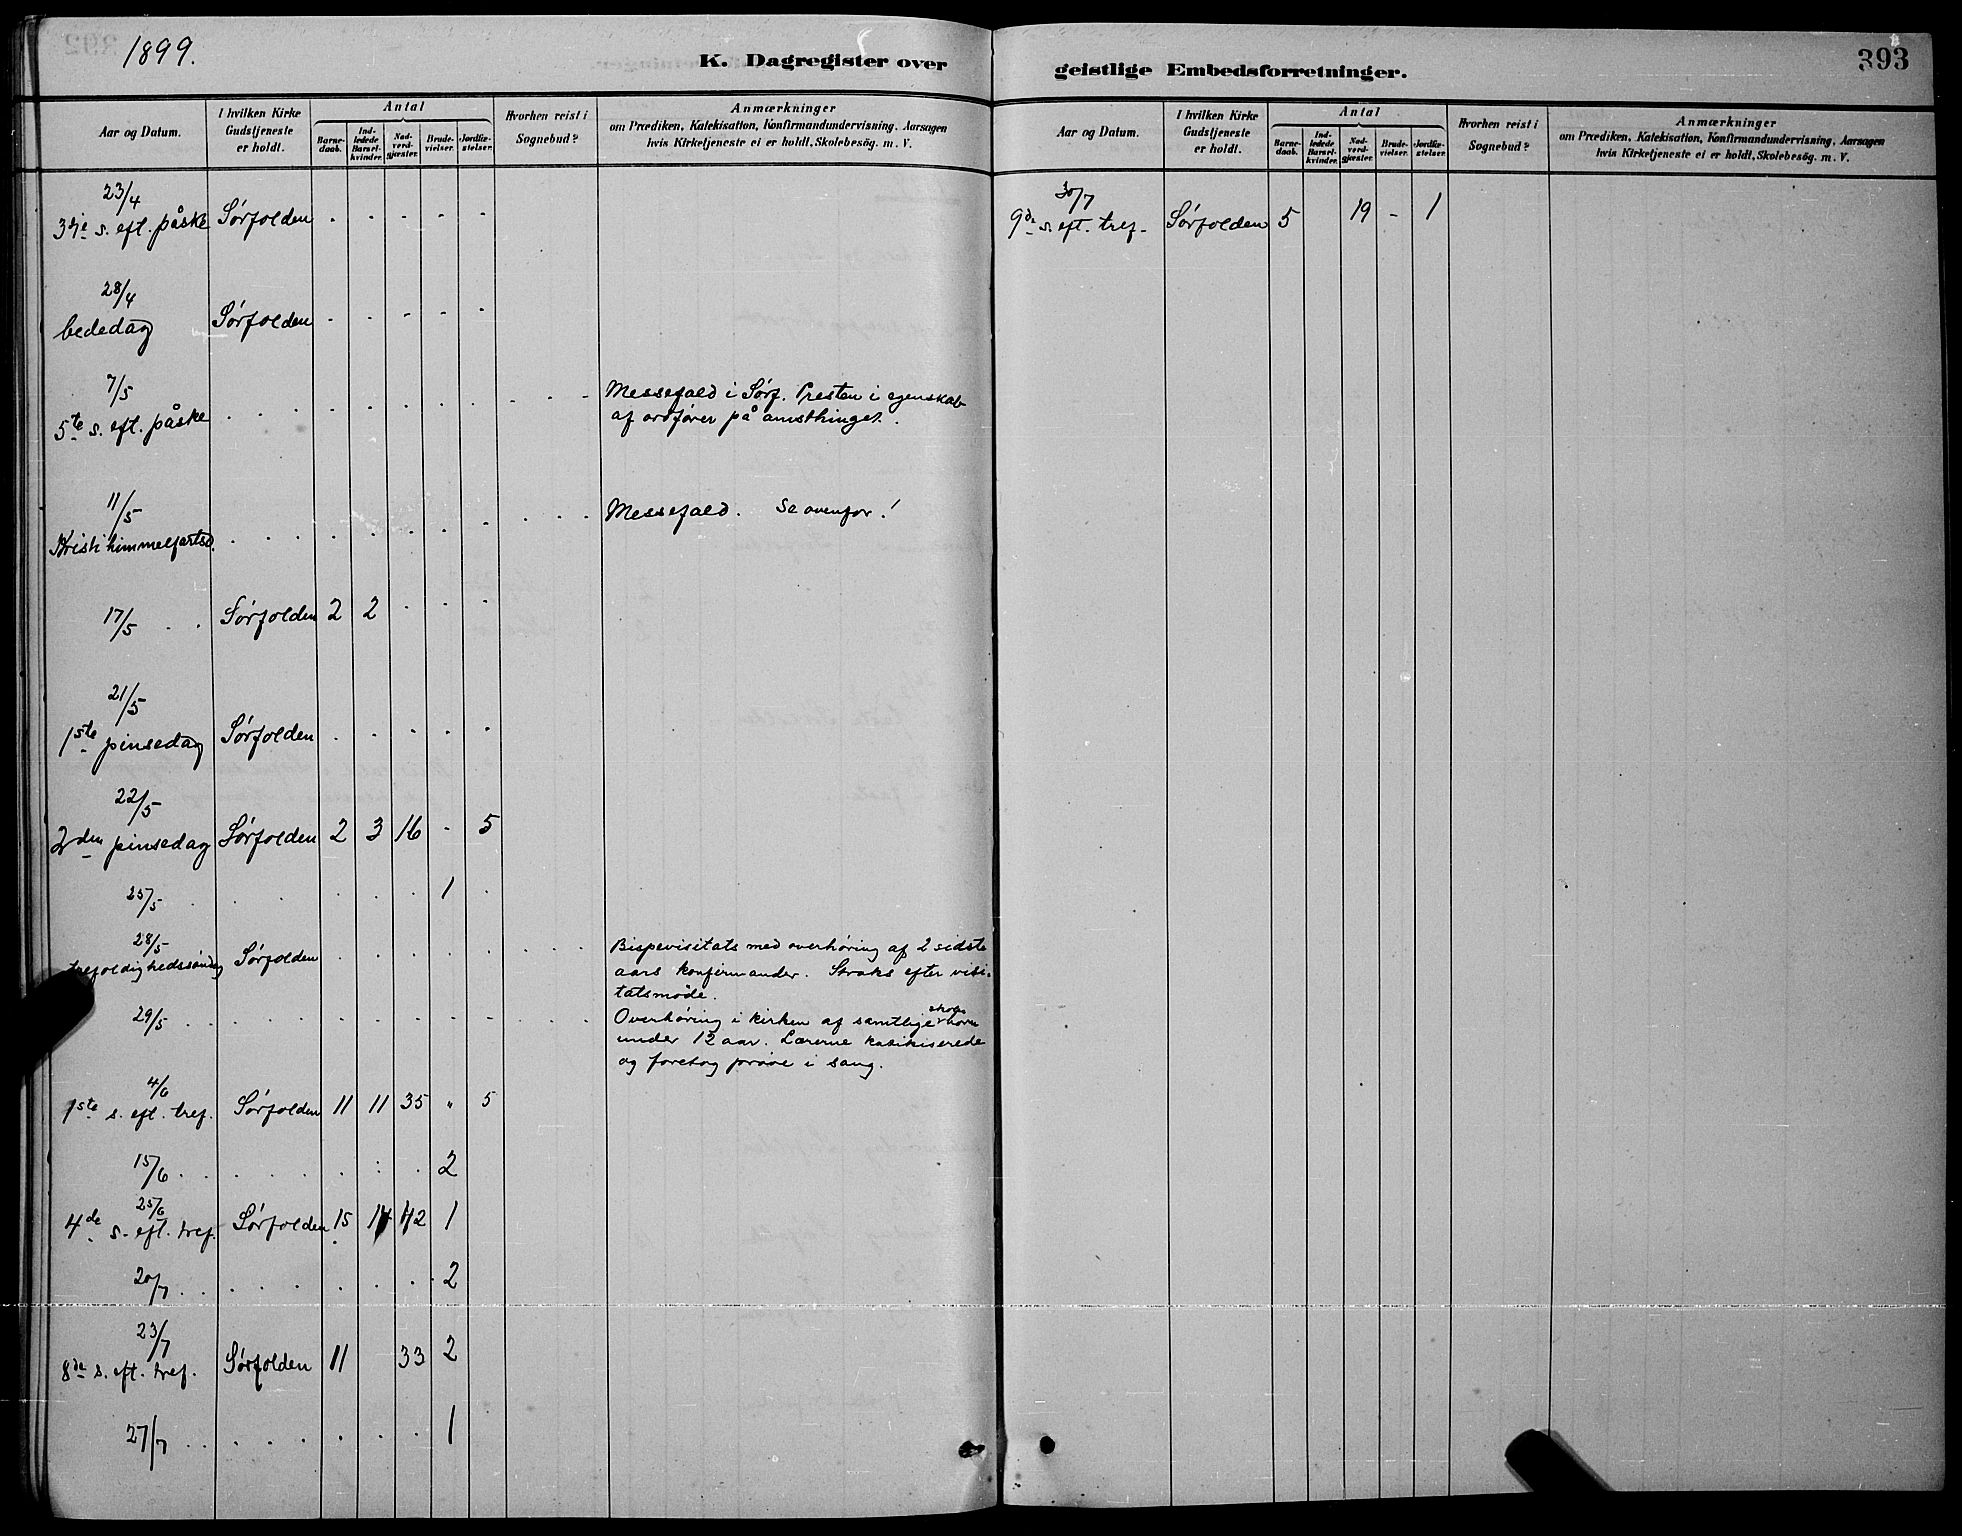 1899.
K. Dagregister over
geistlige Embedsforretninger.
393
Aar og Datum.
I hvilken Kirke
Gudstjeneste
er holdt.
Antal
Barne-
daab.
Ind-
ledede
Barsel-
kvinder.
Nad-
verd-
gjæster.
Brude-
vielser.
Jordfæ-
stelser.
Hvorhen reist i
Sognebud?
Anmærkninger
om Prædiken, Katekisation, Konfirmandundervisning, Aarsagen
hvis Kirketjeneste ei er holdt, Skolebesøg. m. V.
23/4
3dje s. eft. påske Sørfolden - - - - -
28/4
bededag Sørfolden - - - - -
7/5
5te s. eft. påske
Messefald i Sørf. Presten i egenskab
af ordfører på amtsthinget.
11/5
Kristi himmelfartsd.
Messefald. Se ovenfor!
17/5 . . Sørfolden 2 2 . . .
21/5
1ste pinsedag Sørfolden . . . . .
22/5
2den pinsedag Sørfolden 2 3 16 - 5
25/5 . . . . . . 1 .
28/5
trefoldighedssøndag Sørfolden
Bispevisitats med overhøring af 2 sidste
aars konfirmander. Straks efter visi-
tatsmøde.
29/5
Overhøring i kirken af samtlige børn
under 12 aar. Lærerne katikiserede
og foretog prøve i sang.
4/6
1ste s. eft. tref. Sørfolden 11 11 35 " 5
15/6 . . . . . : . 2
25/6
4de s. eft. tref. Sørfolden 15 14 42 1
20/7 . . . . . . . 2
23/7
8de s. eft. tref. Sørfolden 11 33 2
27/7 . . . . . . . 1
Aar og Datum.
I hvilken Kirke
Gudstjeneste
er holdt.
Antal
Barne-
daab.
Ind-
ledede
Barsel-
kvinder.
Nad-
verd-
gjæster.
Brude-
vielser.
Jordfæ-
stelser.
Hvorhen reist i
Sognebud?
Anmærkninger
om Prædiken, Katekisation, Konfirmandundervisning, Aarsagen
hvis Kirketjeneste ei er holdt, Skolebesøg. m. V.
30/7
9de s. eft. tref. Sørfolden 5 19 - 1